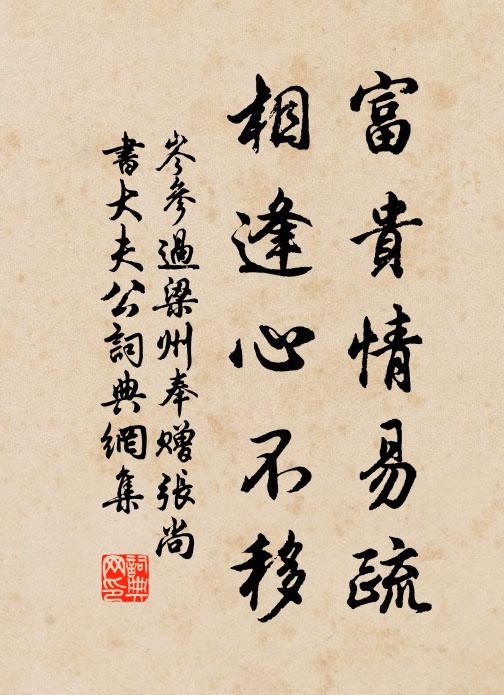 富貴情易疏
相逢心不移
岑參過梁州奉贈張尚
書大夫公詞典網集
詞典网印